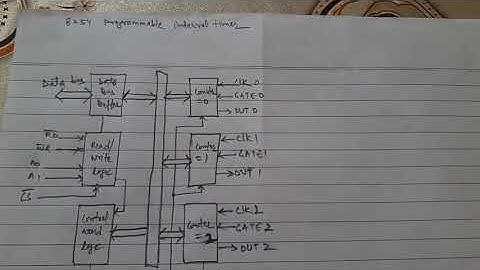 8254 Programmable interval timer
Data bus
Data
bus
buffer
counter
=0
CLK 0
GATE 0
OUT 0
RD
WR
A0
A1
CS
Read/
Write
logic
counter
=1
CLK 1
GATE 1
OUT 1
control
word
logic
counter
=2
CLK 2
GATE 2
OUT 2